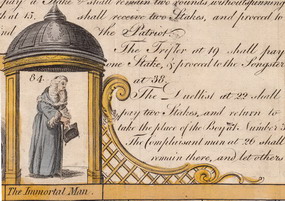 pay a Stake & shall remain two rounds without spinning
that 15, shall receive two Stakes, and proceed to
and the Patriot.
The Trifler at 19 shall pay
one Stake, & proceed to the Songster
at 38.
The Duellist at 22 shall
pay two Stakes, and return to
take the place of the Boy at Number 3
The Complaisant man at 26 shall
remain there, and let others
84.
The Immortal Man.